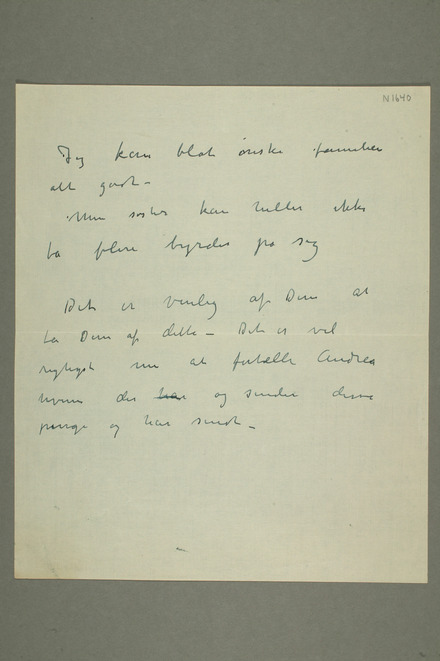 N 1640
Jeg kan blot ønske familien
alt godt –
Min søster kan heller ikke
ta flere byrder på seg
Det er venlig af Dem at
ta Dem af dette – Det er vel
rigtigst nu at fortælle Andrea
hvem der har og sender disse
penge og har sendt –